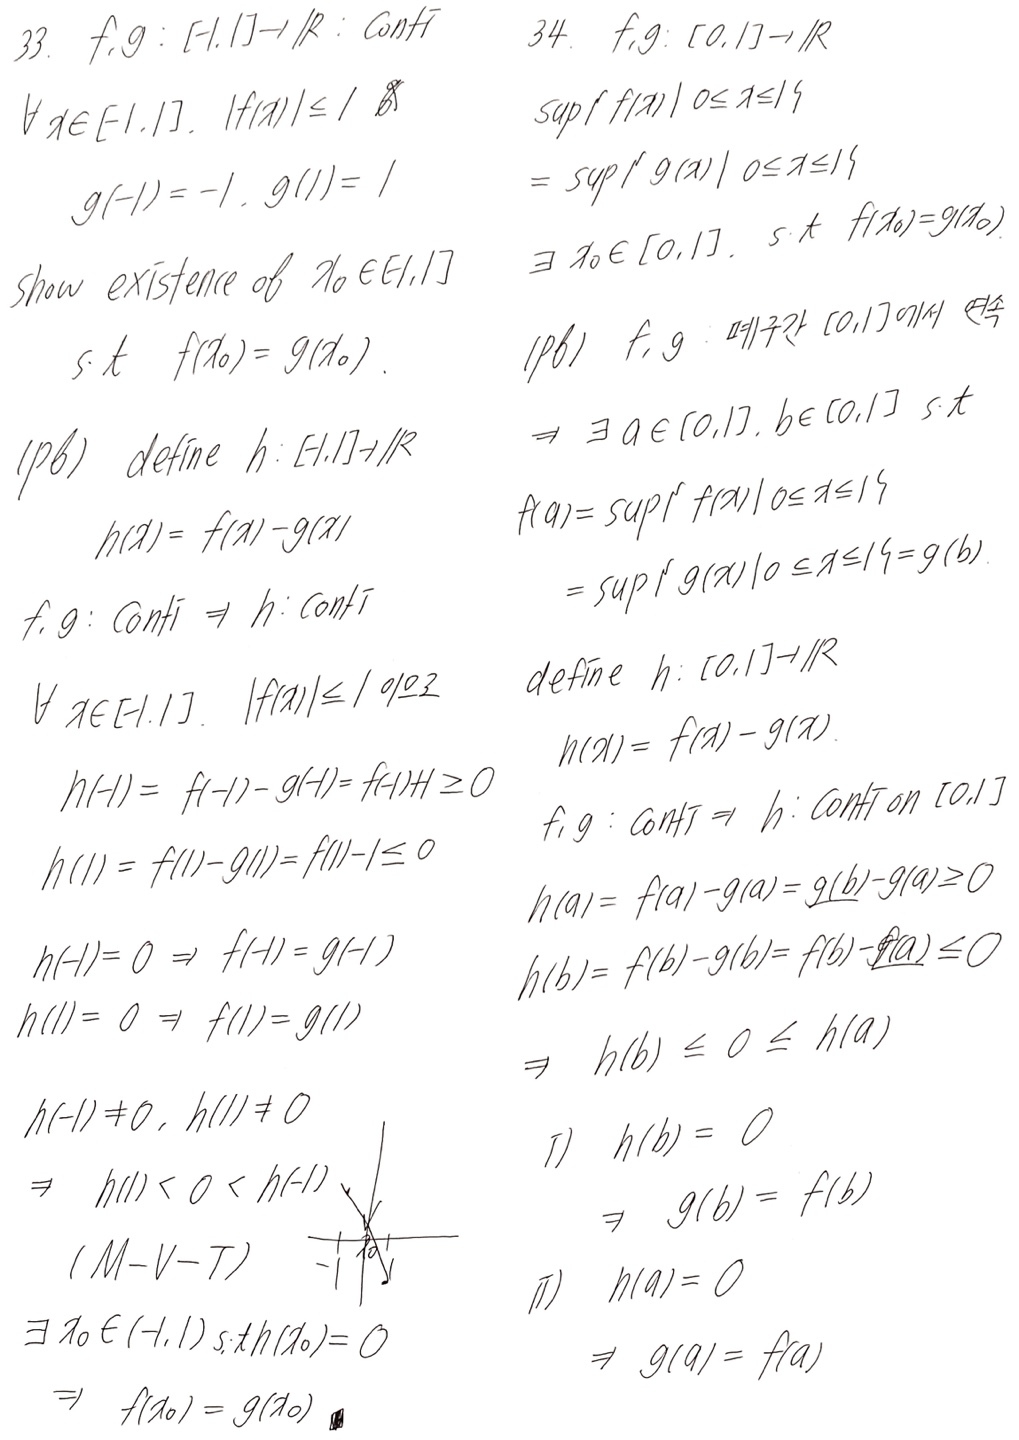 33. f, g : [-1, 1] → ℝ : conti
∀ x ∈ [-1, 1]. |f(x)| ≤ 1
g(-1) = -1, g(1) = 1
show existence of x₀ ∈ [-1, 1]
s.t f(x₀) = g(x₀).
(pf) define h : [-1, 1] → ℝ
h(x) = f(x) - g(x)
f, g : conti ⇒ h : conti
∀ x ∈ [-1, 1]. |f(x)| ≤ 1 이므로
h(-1) = f(-1) - g(-1) = f(-1) + 1 ≥ 0
h(1) = f(1) - g(1) = f(1) - 1 ≤ 0
h(-1) = 0 ⇒ f(-1) = g(-1)
h(1) = 0 ⇒ f(1) = g(1)
h(-1) ≠ 0, h(1) ≠ 0
⇒ h(1) < 0 < h(-1)
-1 x₀ 1
(M-V-T)
∃ x₀ ∈ (-1, 1) s.t h(x₀) = 0
⇒ f(x₀) = g(x₀)
34. f, g : [0, 1] → ℝ
sup{ f(x) | 0 ≤ x ≤ 1}
= sup{ g(x) | 0 ≤ x ≤ 1}
∃ x₀ ∈ [0, 1]. s.t f(x₀) = g(x₀)
(pf) f, g : 폐구간 [0, 1]에서 연속
⇒ ∃ a ∈ [0, 1], b ∈ [0, 1] s.t
f(a) = sup{ f(x) | 0 ≤ x ≤ 1}
= sup{ g(x) | 0 ≤ x ≤ 1} = g(b).
define h : [0, 1] → ℝ
h(x) = f(x) - g(x).
f, g : conti ⇒ h : conti on [0, 1]
h(a) = f(a) - g(a) = g(b) - g(a) ≥ 0
h(b) = f(b) - g(b) = f(b) - f(a) ≤ 0
⇒ h(b) ≤ 0 ≤ h(a)
i) h(b) = 0
⇒ g(b) = f(b)
ii) h(a) = 0
⇒ g(a) = f(a)